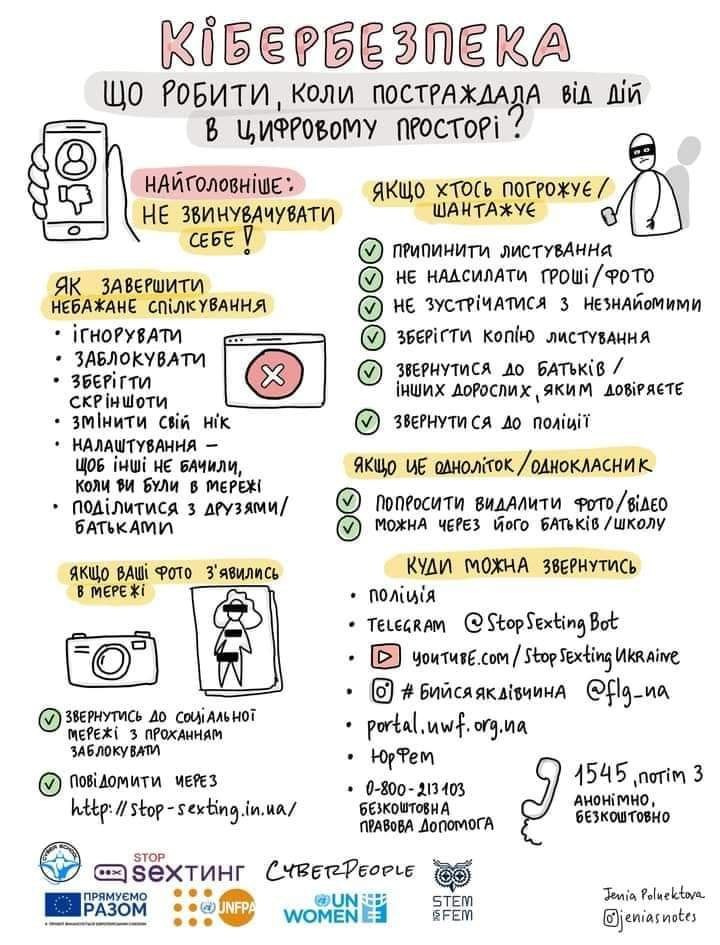 КІБЕРБЕЗПЕКА
ЩО РОБИТИ, КОЛИ ПОСТРАЖДАЛА ВІД ДІЙ
В ЦИФРОВОМУ ПРОСТОРІ?
НАЙГОЛОВНІШЕ:
НЕ ЗВИНУВАЧУВАТИ
СЕБЕ!
ЯК ЗАВЕРШИТИ
НЕБАЖАНЕ СПІЛКУВАННЯ
• ІГНОРУВАТИ
• ЗАБЛОКУВАТИ
• ЗБЕРІГТИ
СКРІНШОТИ
• ЗМІНИТИ СВІЙ НІК
• НАЛАШТУВАННЯ –
ЩОБ ІНШІ НЕ БАЧИЛИ,
КОЛИ ВИ БУЛИ В МЕРЕЖІ
• ПОДІЛИТИСЯ З ДРУЗЯМИ/
БАТЬКАМИ
ЯКЩО ВАШІ ФОТО З'ЯВИЛИСЬ
В МЕРЕЖІ
ЗВЕРНУТИСЬ ДО СОЦІАЛЬНОЇ
МЕРЕЖІ З ПРОХАННЯМ
ЗАБЛОКУВАТИ
ПОВІДОМИТИ ЧЕРЕЗ
http://stop-sexting.in.ua/
ЯКЩО ХТОСЬ ПОГРОЖУЄ/
ШАНТАЖУЄ
ПРИПИНИТИ ЛИСТУВАННЯ
НЕ НАДСИЛАТИ ГРОШІ/ФОТО
НЕ ЗУСТРІЧАТИСЯ З НЕЗНАЙОМИМИ
ЗБЕРІГТИ КОПІЮ ЛИСТУВАННЯ
ЗВЕРНУТИСЯ ДО БАТЬКІВ /
ІНШИХ ДОРОСЛИХ, ЯКИМ ДОВІРЯЄТЕ
ЗВЕРНУТИСЯ ДО ПОЛІЦІЇ
ЯКЩО ЦЕ ОДНОЛІТОК/ОДНОКЛАСНИК
ПОПРОСИТИ ВИДАЛИТИ ФОТО/ВІДЕО
МОЖНА ЧЕРЕЗ ЙОГО БАТЬКІВ/ШКОЛУ
КУДИ МОЖНА ЗВЕРНУТИСЬ
• ПОЛІЦІЯ
• TELEGRAM @StopSextingBot
• YOUTUBE.com/StopSextingUKRAine
• #БИЙСЯЯКДІВЧИНА @flg_ua
• portal.uwf.org.ua
• ЮрФем
• 0-800-213103
БЕЗКОШТОВНА
ПРАВОВА ДОПОМОГА
1545, ПОТІМ 3
АНОНІМНО,
БЕЗКОШТОВНО
CYBER SCHOOL
STOP
SEXТИНГ
CYBERPEOPLE
ПРЯМУЄМО
РАЗОМ
UNFPA
UN
WOMEN
STEM
IS
FEM
Jenia Poluektova
@jeniasnotes